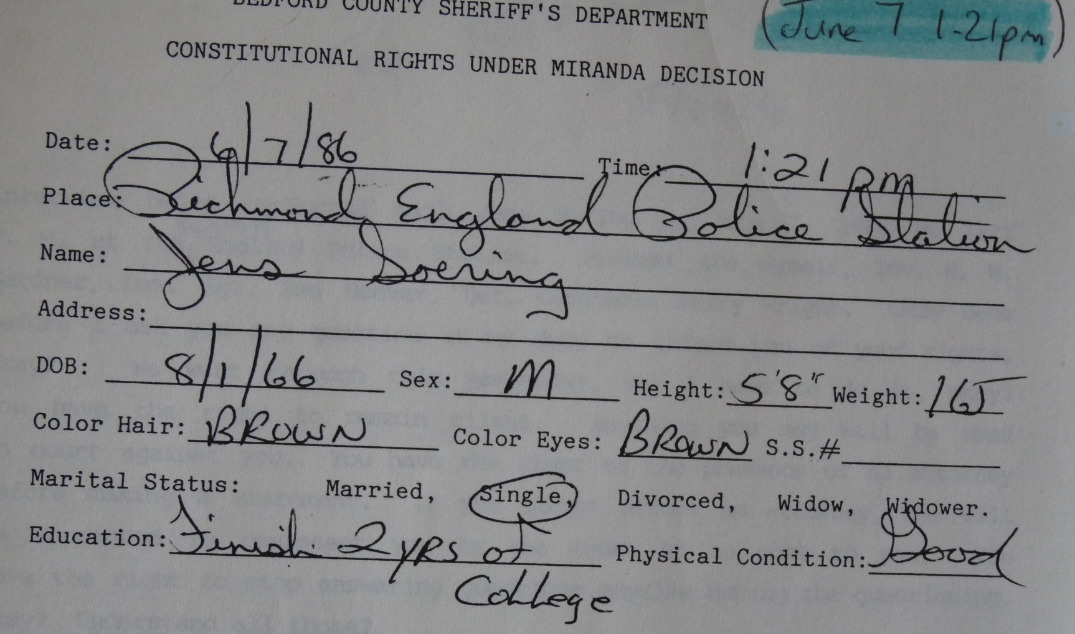 BEDFORD COUNTY SHERIFF'S DEPARTMENT
(June 7 1-21pm)
CONSTITUTIONAL RIGHTS UNDER MIRANDA DECISION
Date: 6/7/86 Time: 1:21 PM
Place: Richmond, England Police Station
Name: Jens Soering
Address:
DOB: 8/1/66 Sex: M Height: 5'8" Weight: 165
Color Hair: BROWN Color Eyes: BROWN S.S.#
Marital Status: Married, Single, Divorced, Widow, Widower.
Education: Finish 2 yrs of Physical Condition: Good
College